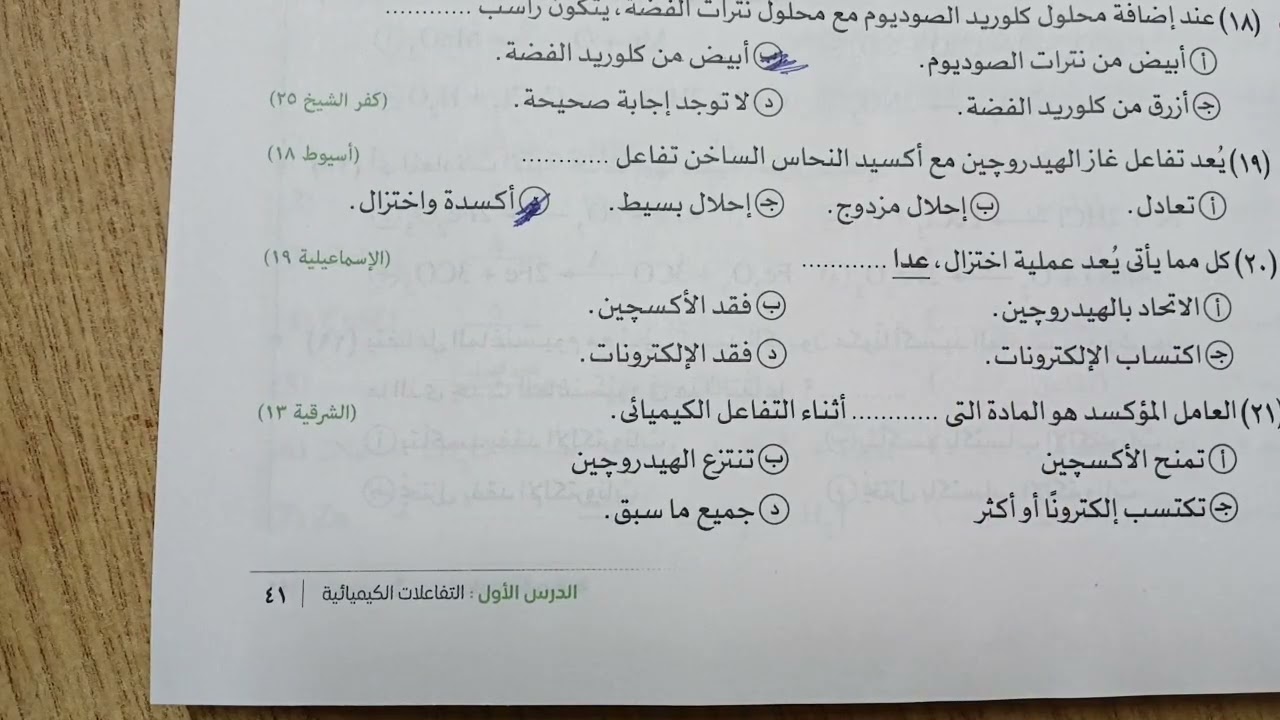 (١٨) عند إضافة محلول كلوريد الصوديوم مع محلول نترات الفضة، يتكون راسب ............
أ أبيض من نترات الصوديوم. ب أبيض من كلوريد الفضة.
جـ أزرق من كلوريد الفضة. د لا توجد إجابة صحيحة. (كفر الشيخ ٢٥)
(١٩) يُعد تفاعل غاز الهيدروچين مع أكسيد النحاس الساخن تفاعل ............ (أسيوط ١٨)
أ تعادل. ب إحلال مزدوج. جـ إحلال بسيط. د أكسدة واختزال.
(٢٠) كل مما يأتى يُعد عملية اختزال، عدا ............ (الإسماعيلية ١٩)
أ الاتحاد بالهيدروچين. ب فقد الأكسچين.
جـ اكتساب الإلكترونات. د فقد الإلكترونات.
(٢١) العامل المؤكسد هو المادة التى ............ أثناء التفاعل الكيميائى. (الشرقية ١٣)
أ تمنح الأكسچين ب تنتزع الهيدروچين
جـ تكتسب إلكترونًا أو أكثر د جميع ما سبق.
الدرس الأول : التفاعلات الكيميائية | ٤١